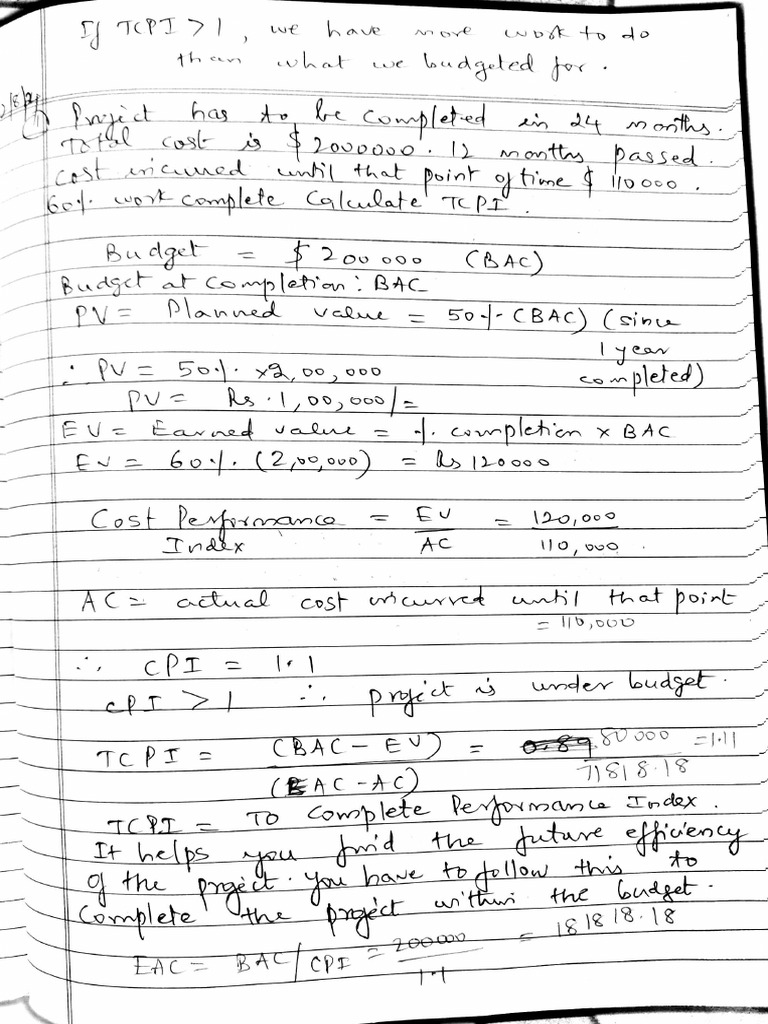 If TCPI > 1, we have more work to do
than what we budgeted for.
1) Project has to be completed in 24 months.
Total cost is $ 2000000. 12 months passed.
Cost incurred until that point of time $ 110000.
60% work complete Calculate TCPI.
Budget = $ 200000 (BAC)
Budget at Completion : BAC
PV = Planned value = 50% (BAC) (since
1 year
completed)
∴ PV = 50% x 2,00,000
PV = Rs. 1,00,000/=
EV = Earned value = % completion x BAC
EV = 60% (2,00,000) = Rs 120000
Cost Performance = EV = 120,000
Index AC 110,000.
AC = actual cost incurred until that point
= 110,000
∴ CPI = 1.1
CPI > 1 ∴ project is under budget.
TCPI = (BAC - EV) = 80000 = 1.11
(EAC - AC) 71818.18
TCPI = To Complete Performance Index.
It helps you find the future efficiency
of the project. You have to follow this to
Complete the project within the budget.
EAC = BAC/CPI = 200000 = 181818.18
1.1